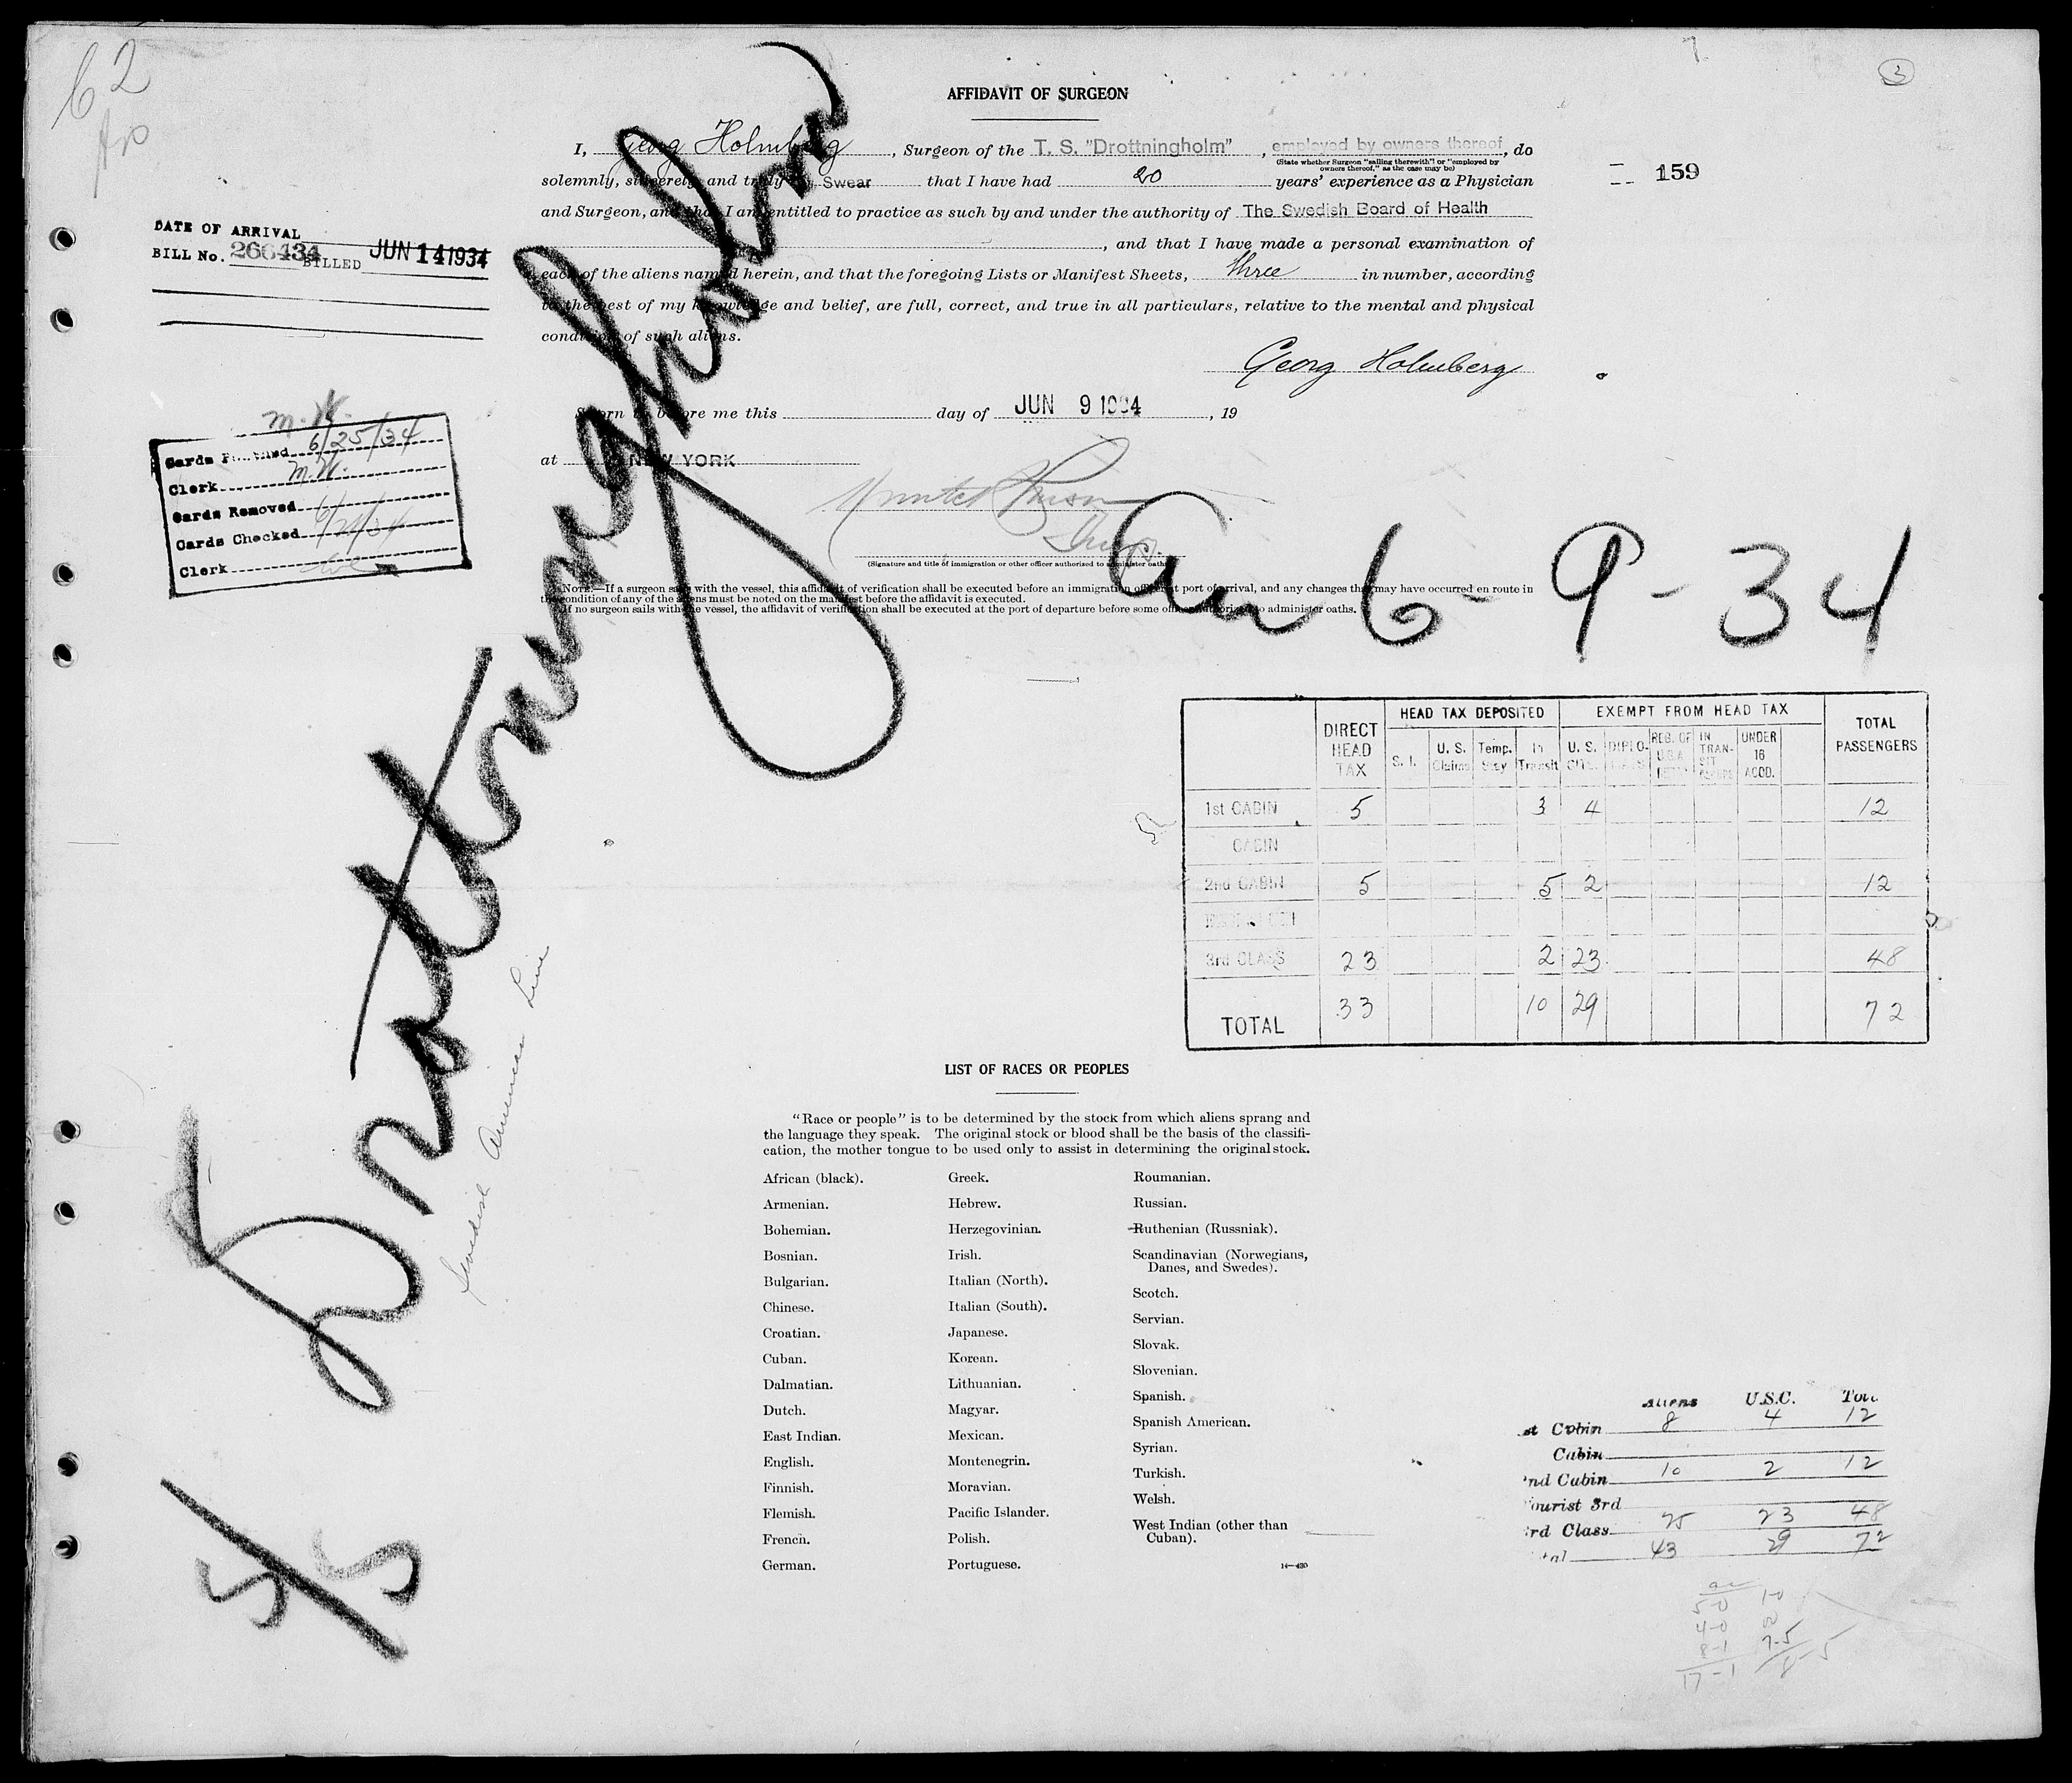 62
3
AFFIDAVIT OF SURGEON
I, Georg Holmberg, Surgeon of the T. S. "Drottningholm", employed by owners thereof, do
(State whether Surgeon "sailing therewith" or "employed by
owners thereof," as the case may be)
159
solemnly, sincerely, and truly Swear that I have had 20 years' experience as a Physician
and Surgeon, and that I am entitled to practice as such by and under the authority of The Swedish Board of Health
, and that I have made a personal examination of
each of the aliens named herein, and that the foregoing Lists or Manifest Sheets, three in number, according
to the best of my knowledge and belief, are full, correct, and true in all particulars, relative to the mental and physical
condition of such aliens.
Georg Holmberg
Sworn to before me this day of JUN 9 1934, 19
at NEW YORK
(Signature and title of immigration or other officer authorized to administer oaths)
NOTE.—If a surgeon sails with the vessel, this affidavit of verification shall be executed before an immigration officer at port of arrival, and any changes that may have occurred en route in
the condition of any of the aliens must be noted on the manifest before the affidavit is executed.
If no surgeon sails with the vessel, the affidavit of verification shall be executed at the port of departure before some officer authorized to administer oaths.
DATE OF ARRIVAL
BILL No. 266434 BILLED JUN 14 1934
M.W.
Cards Punched 6/25/34
Clerk M.W.
Cards Removed
Cards Checked
Clerk
Drottningholm
Swedish American Line
Arr 6-9-34
5/5
DIRECT HEAD TAX
HEAD TAX DEPOSITED
EXEMPT FROM HEAD TAX
TOTAL PASSENGERS
S. I. U. S. Claims Temp. Stay In Transit U. S. CITS. UNDER 16 ACCD.
1st CABIN 5 3 4 12
CABIN
2nd CABIN 5 5 2 12
3rd CLASS 23 2 23 48
TOTAL 33 10 29 72
LIST OF RACES OR PEOPLES
"Race or people" is to be determined by the stock from which aliens sprang and
the language they speak. The original stock or blood shall be the basis of the classifi-
cation, the mother tongue to be used only to assist in determining the original stock.
African (black).
Armenian.
Bohemian.
Bosnian.
Bulgarian.
Chinese.
Croatian.
Cuban.
Dalmatian.
Dutch.
East Indian.
English.
Finnish.
Flemish.
French.
German.
Greek.
Hebrew.
Herzegovinian.
Irish.
Italian (North).
Italian (South).
Japanese.
Korean.
Lithuanian.
Magyar.
Mexican.
Montenegrin.
Moravian.
Pacific Islander.
Polish.
Portuguese.
Roumanian.
Russian.
Ruthenian (Russniak).
Scandinavian (Norwegians,
Danes, and Swedes).
Scotch.
Servian.
Slovak.
Slovenian.
Spanish.
Spanish American.
Syrian.
Turkish.
Welsh.
West Indian (other than
Cuban).
14—430
Aliens U.S.C. Total
st Cabin 8 4 12
Cabin
nd Cabin 10 2 12
ourist 3rd
rd Class 25 23 48
tal 43 29 72
5-0 1-0
4-0
8-1 7-5
17-1 8-5